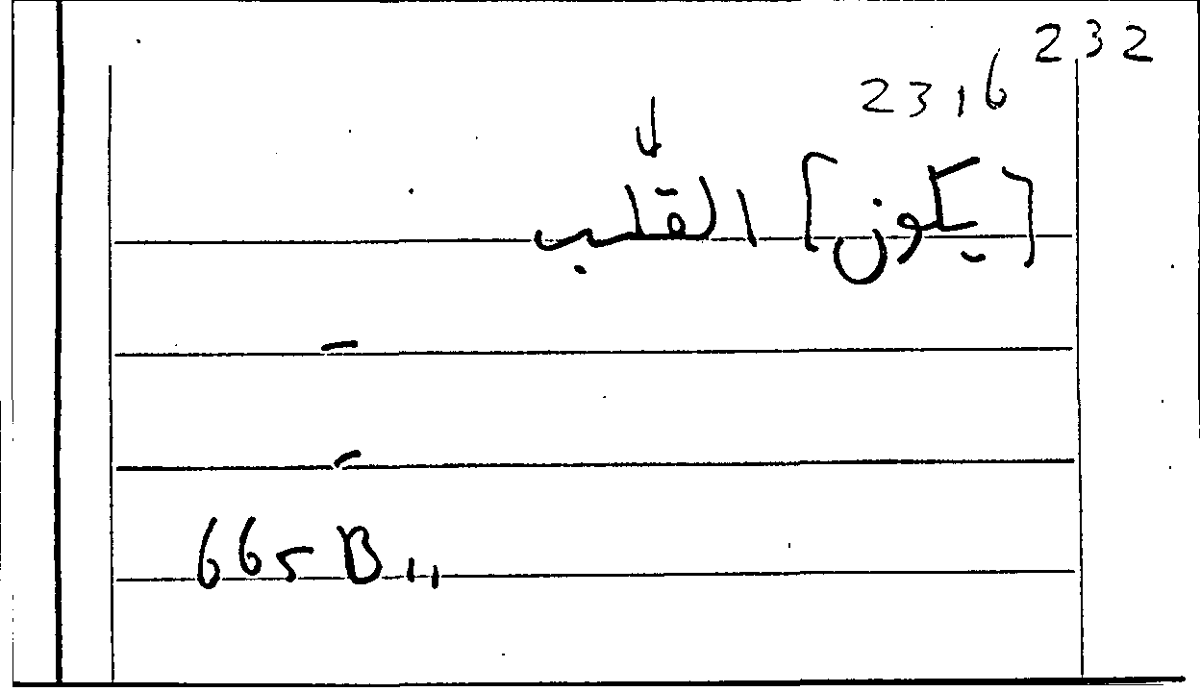 232
2316
[يكون] القلب
-
-
665 B 11